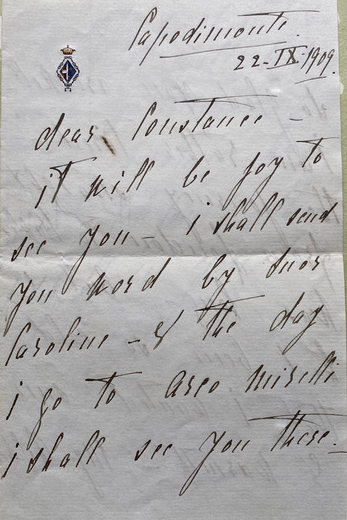 Capodimonte.
22-IX-1909.
dear Constance -
it will be joy to
see you - i shall send
you word by
Caroline - & the day
i go to Arco Mirelli
i shall see you there.